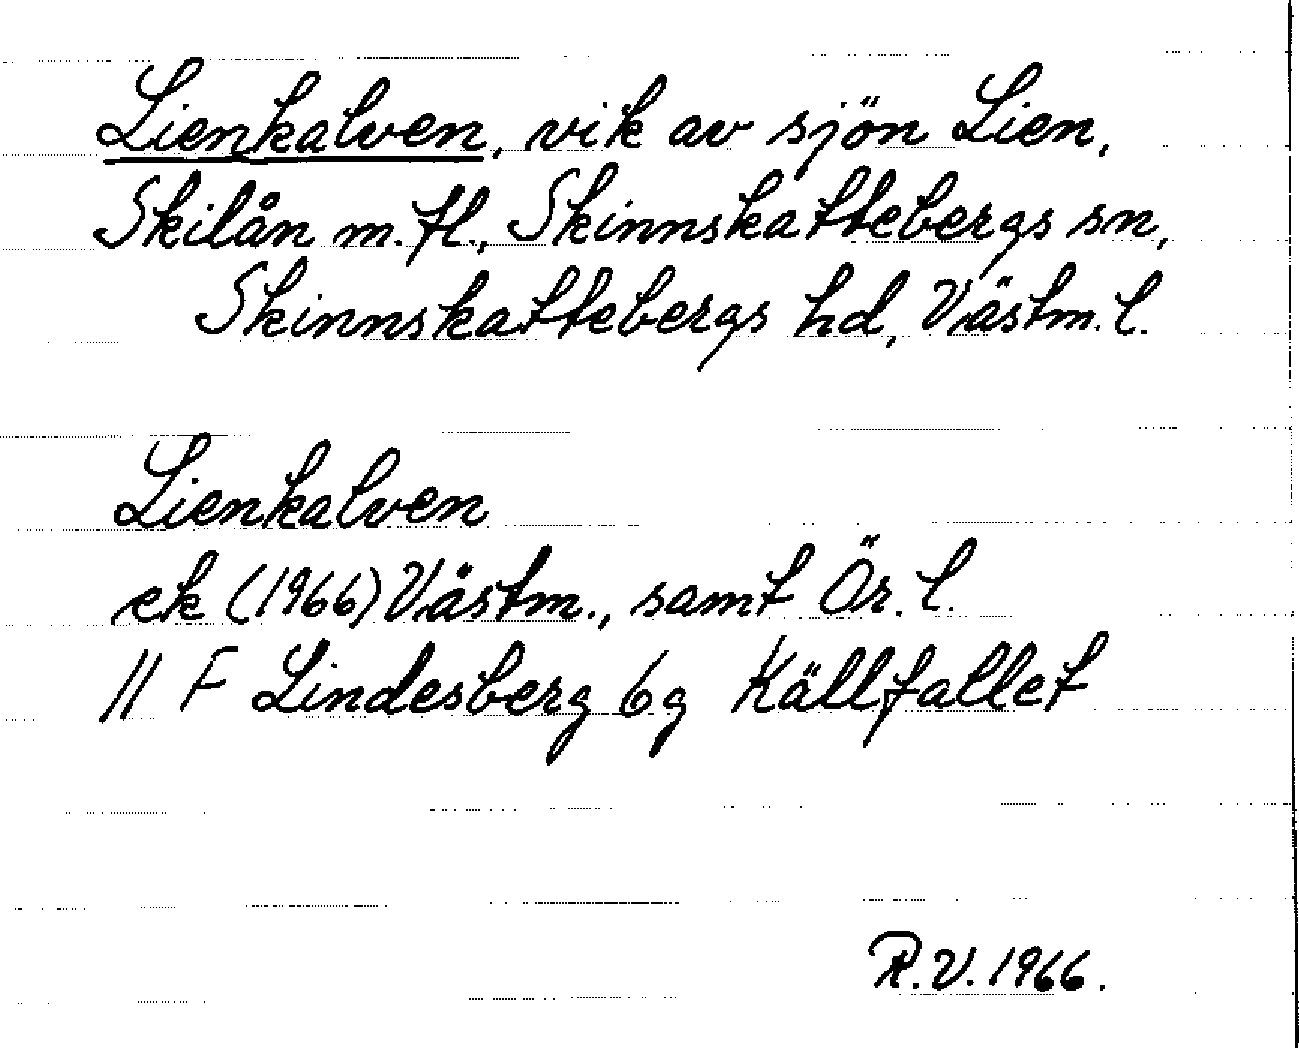 Lienkalven, vik av sjön Lien,
Skilån m.fl., Skinnskattebergs sn,
Skinnskattebergs hd, Västm. l.
Lienkalven
ek (1966) Västm., samt Ör. l.
11 F Lindesberg 6g Källfallet
R.V. 1966.